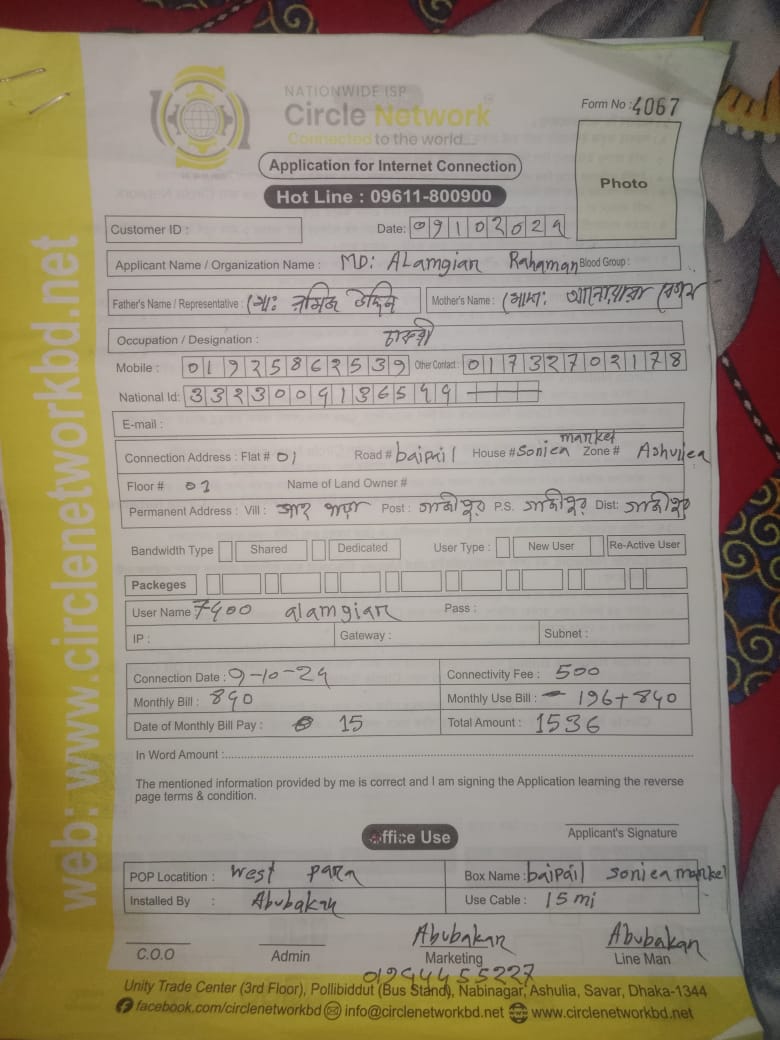 NATIONWIDE ISP
Circle Network
Connected to the world...
Form No : 4067
Application for Internet Connection
Photo
Hot Line : 09611-800900
Customer ID :
Date: 09102024
Applicant Name / Organization Name : MD: ALamgian Rahaman Blood Group :
Father's Name / Representative : Mother's Name :
Occupation / Designation : চাকরী
Mobile : 01925862539 Other Contact : 01732702178
National Id: 3323009136599
E-mail :
market
Connection Address : Flat # 01 Road # baipail House # Sonien Zone # Ashuliea
Floor # 01 Name of Land Owner #
Permanent Address : Vill : Post : গাজীপুর P.S. গাজীপুর Dist: গাজীপুর
Bandwidth Type Shared Dedicated User Type : New User Re-Active User
Packeges
User Name 7400 alamgian Pass :
IP : Gateway : Subnet :
Connection Date : 9-10-24 Connectivity Fee : 500
Monthly Bill : 840 Monthly Use Bill : 196+840
Date of Monthly Bill Pay : 15 Total Amount : 1536
In Word Amount :
The mentioned information provided by me is correct and I am signing the Application learning the reverse
page terms & condition.
Office Use
Applicant's Signature
POP Locatition : West para Box Name : baipail sonien market
Installed By : Abubakan Use Cable : 15 mi
Abubakan Abubakan
C.O.O Admin Marketing Line Man
01944455227
Unity Trade Center (3rd Floor), Pollibiddut (Bus Stand), Nabinagar, Ashulia, Savar, Dhaka-1344
facebook.com/circlenetworkbd info@circlenetworkbd.net www.circlenetworkbd.net
web: www.circlenetworkbd.net